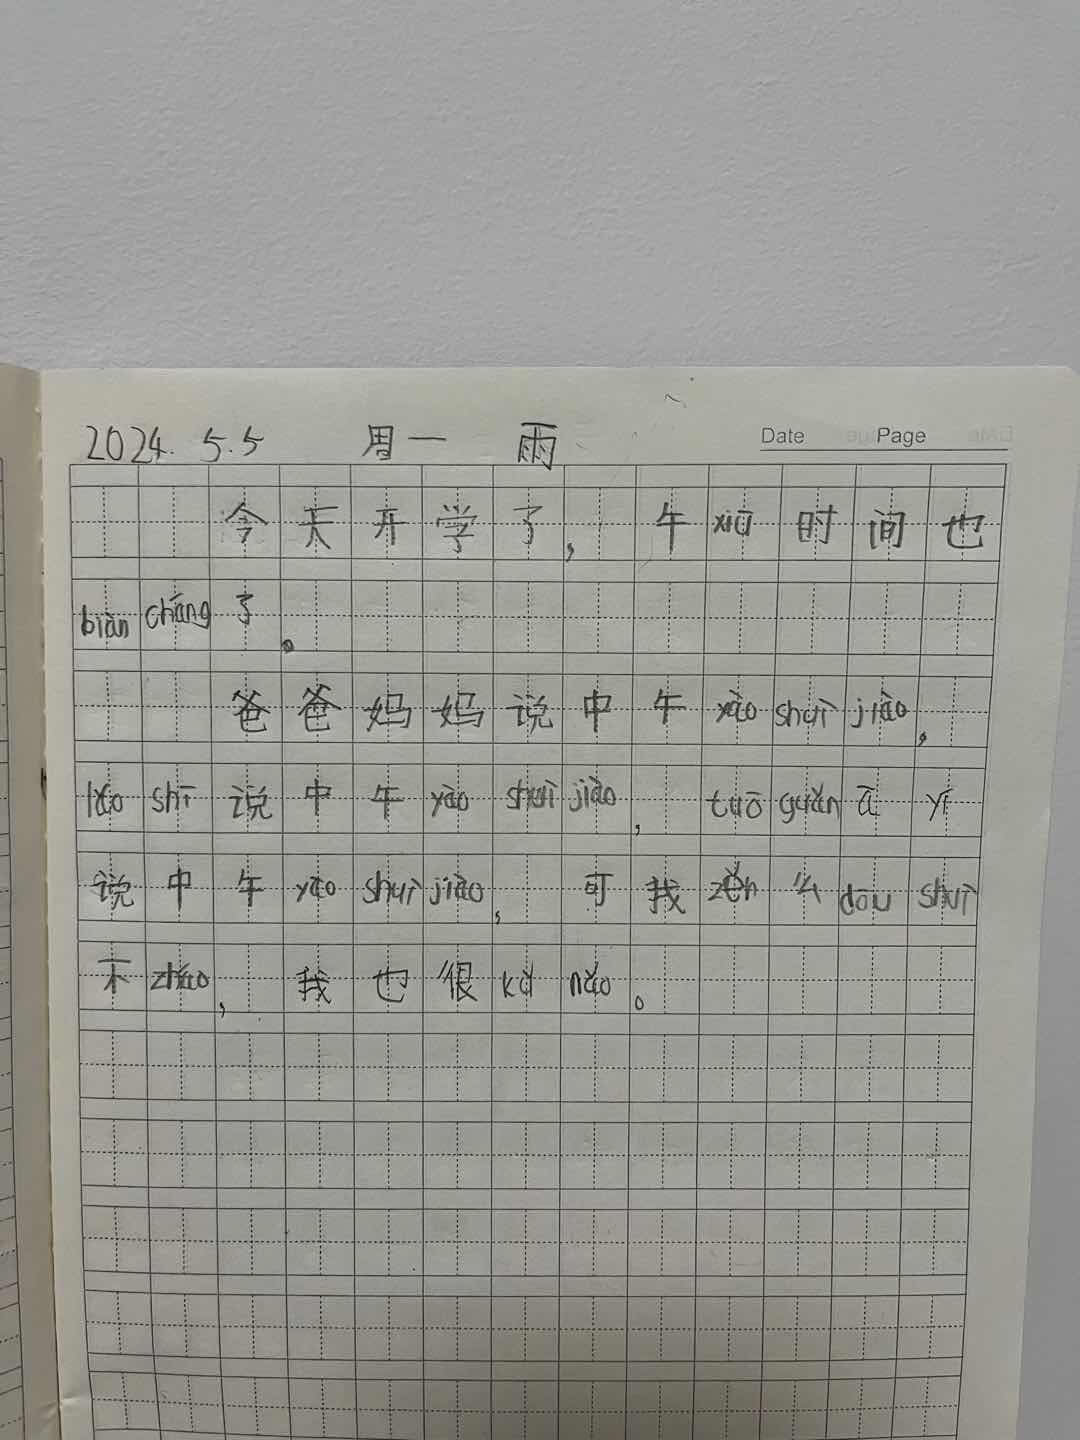 2024. 5.5 周一 雨
Date Page
今天开学了, 午xiū时间也
biàn cháng了。
爸爸妈妈说中午yào shuì jiào,
lǎo shī说中午yào shuì jiào, tuō guǎn ā yí
说中午yào shuì jiào, 可我zěn么dōu shuì
不zháo, 我也很kǔ nǎo。